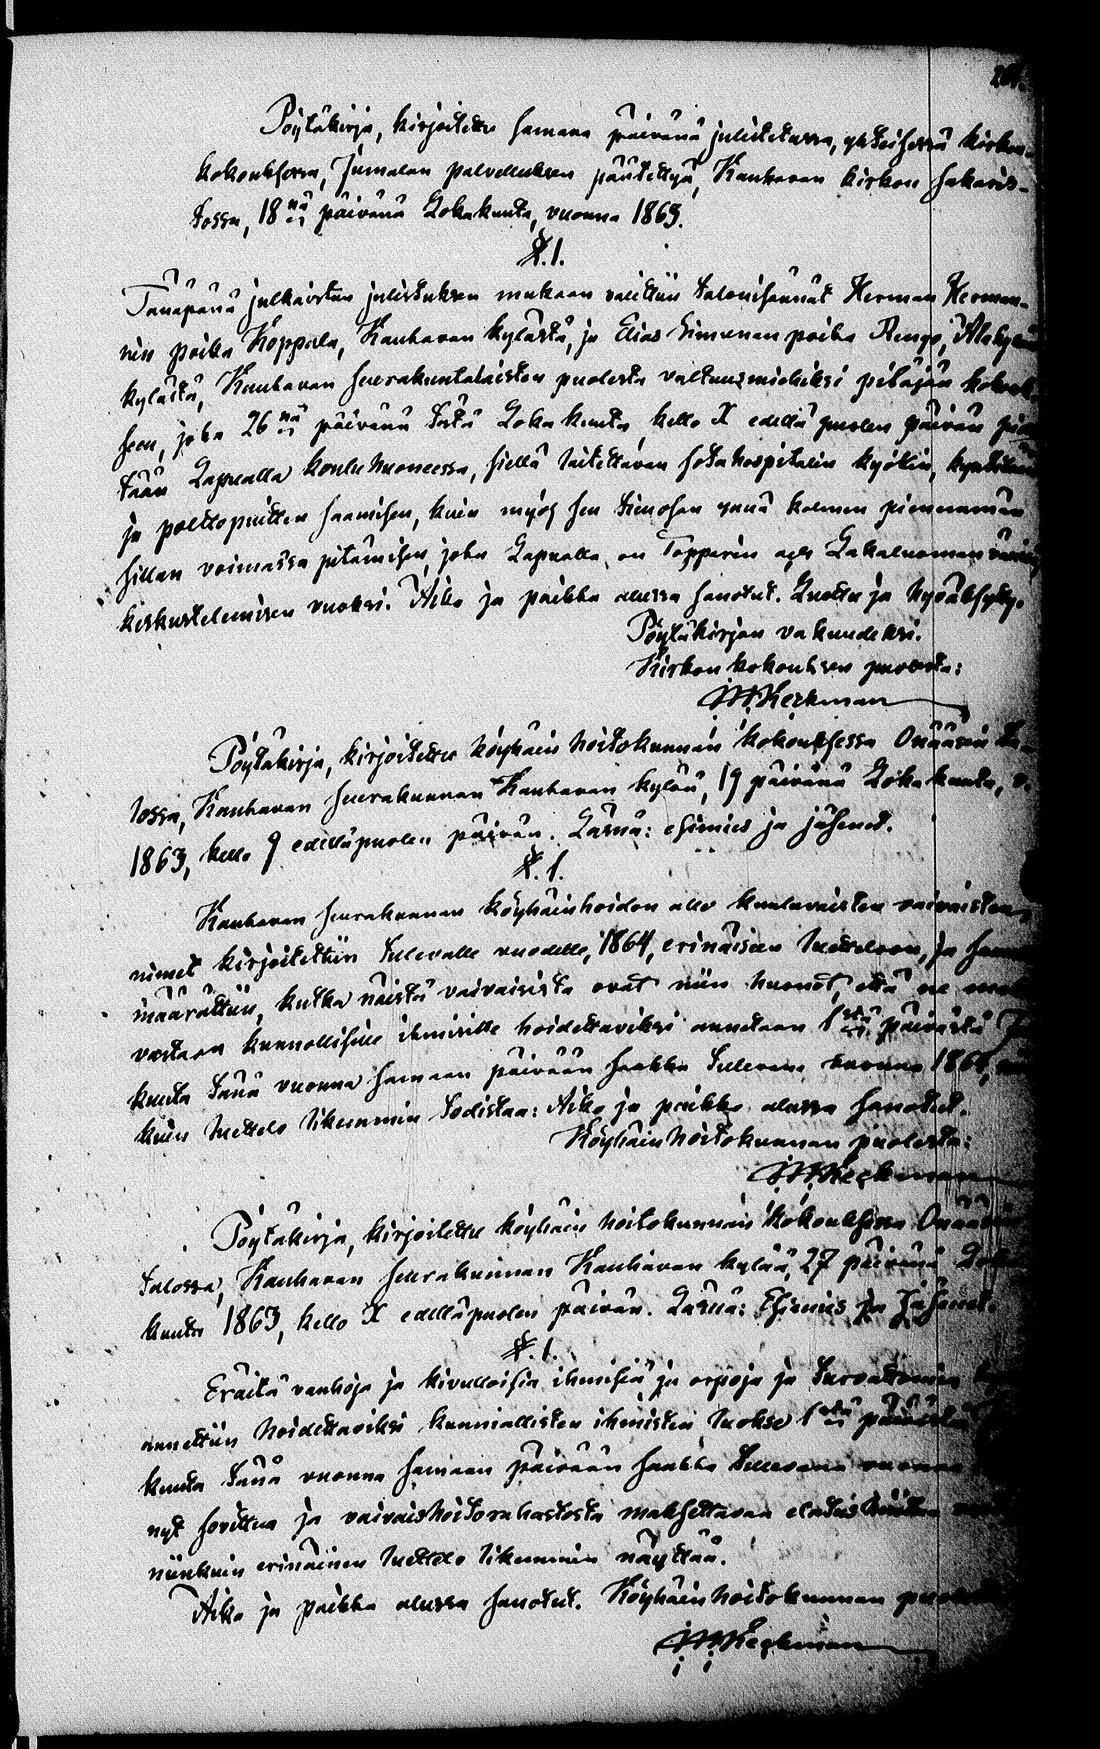 Pöytäkirja, kirjoitettu samana päivänä julistetussa, yhteisessä kirkon-
kokouksessa, Jumalan palvelluksen päätettyä, Kauhavan kirkon sakaris-
tossa, 18 nä päivänä Lokakuuta, vuonna 1863.
§. 1.
Tänäpänä julkaistun julistuksen mukaan valittiin talonisännät Herman Herman-
nin poika Koppala, Kauhavan kylästä, ja Elias Simunan poika Rengo,
kylästä, Kauhavan seurakuntalaisten puolesta valtuusmiehiksi pitäjän
seen, joka 26 nä päivänä tätä Lokakuuta, kello X edellä puolen päivän
tään Lapualla kouluhuoneessa, siellä laitettavan sotahospitalin kyökin,
ja polttopuitten saamisen, kuin myös sen Simosan ynnä kolmen pienemmän
sillan voimassa pitämisen, joka Lapualla on Topparin
keskustelemisen vuoksi. Aika ja paikka alussa sanotut. Luettu ja hyväksytty.
Pöytäkirjan vakuudeksi.
Kirkon kokouksen puolesta:
Pöytäkirja, kirjoitettu köyhäin hoitokunnan kokouksessa
lossa, Kauhavan seurakunnan Kauhavan kylää, 19 päivänä Lokakuuta, v.
1863, kello 9 edelläpuolen päivän. Läsnä: esimies ja jäsenet.
§. 1.
Kauhavan seurakunnan köyhäinhoidon alle kuuluvaisten vaivaisten
nimet kirjoitettiin tulevalle vuodelle, 1864, erinäiseen luetteloon, ja
määrättiin, kutka näistä vaivaisista ovat niin huonot, että ne
vastaan kunnollisille ihmisille hoidettaviksi annetaan 1 stä päivästä
kuuta tänä vuonna samaan päivään saakka tulevana vuonna 1864,
kuin luettelo likemmin todistaa: Aika ja paikka alussa sanotut.
Köyhäinhoitokunnan puolesta:
Pöytäkirja, kirjoitettu köyhäin hoitokunnan kokouksessa
talossa, Kauhavan seurakunnan Kauhavan kylää, 27 päivänä
kuuta 1863, kello X edelläpuolen päivän. Läsnä: Esimies ja Jäsenet.
§. 1.
Eräitä vanhoja ja kivulloisia ihmisiä ja orpoja ja turvattomia
annettiin hoidettaviksi kunniallisten ihmisten luokse 1 stä päivästä
kuuta tänä vuonna samaan päivään saakka tulevana vuonna
nyt sovittua ja vaivaishoitorahastosta maksettavaa
niinkuin erinäinen luettelo likemmin näyttää.
Aika ja paikka alussa sanotut. Köyhäinhoitokunnan